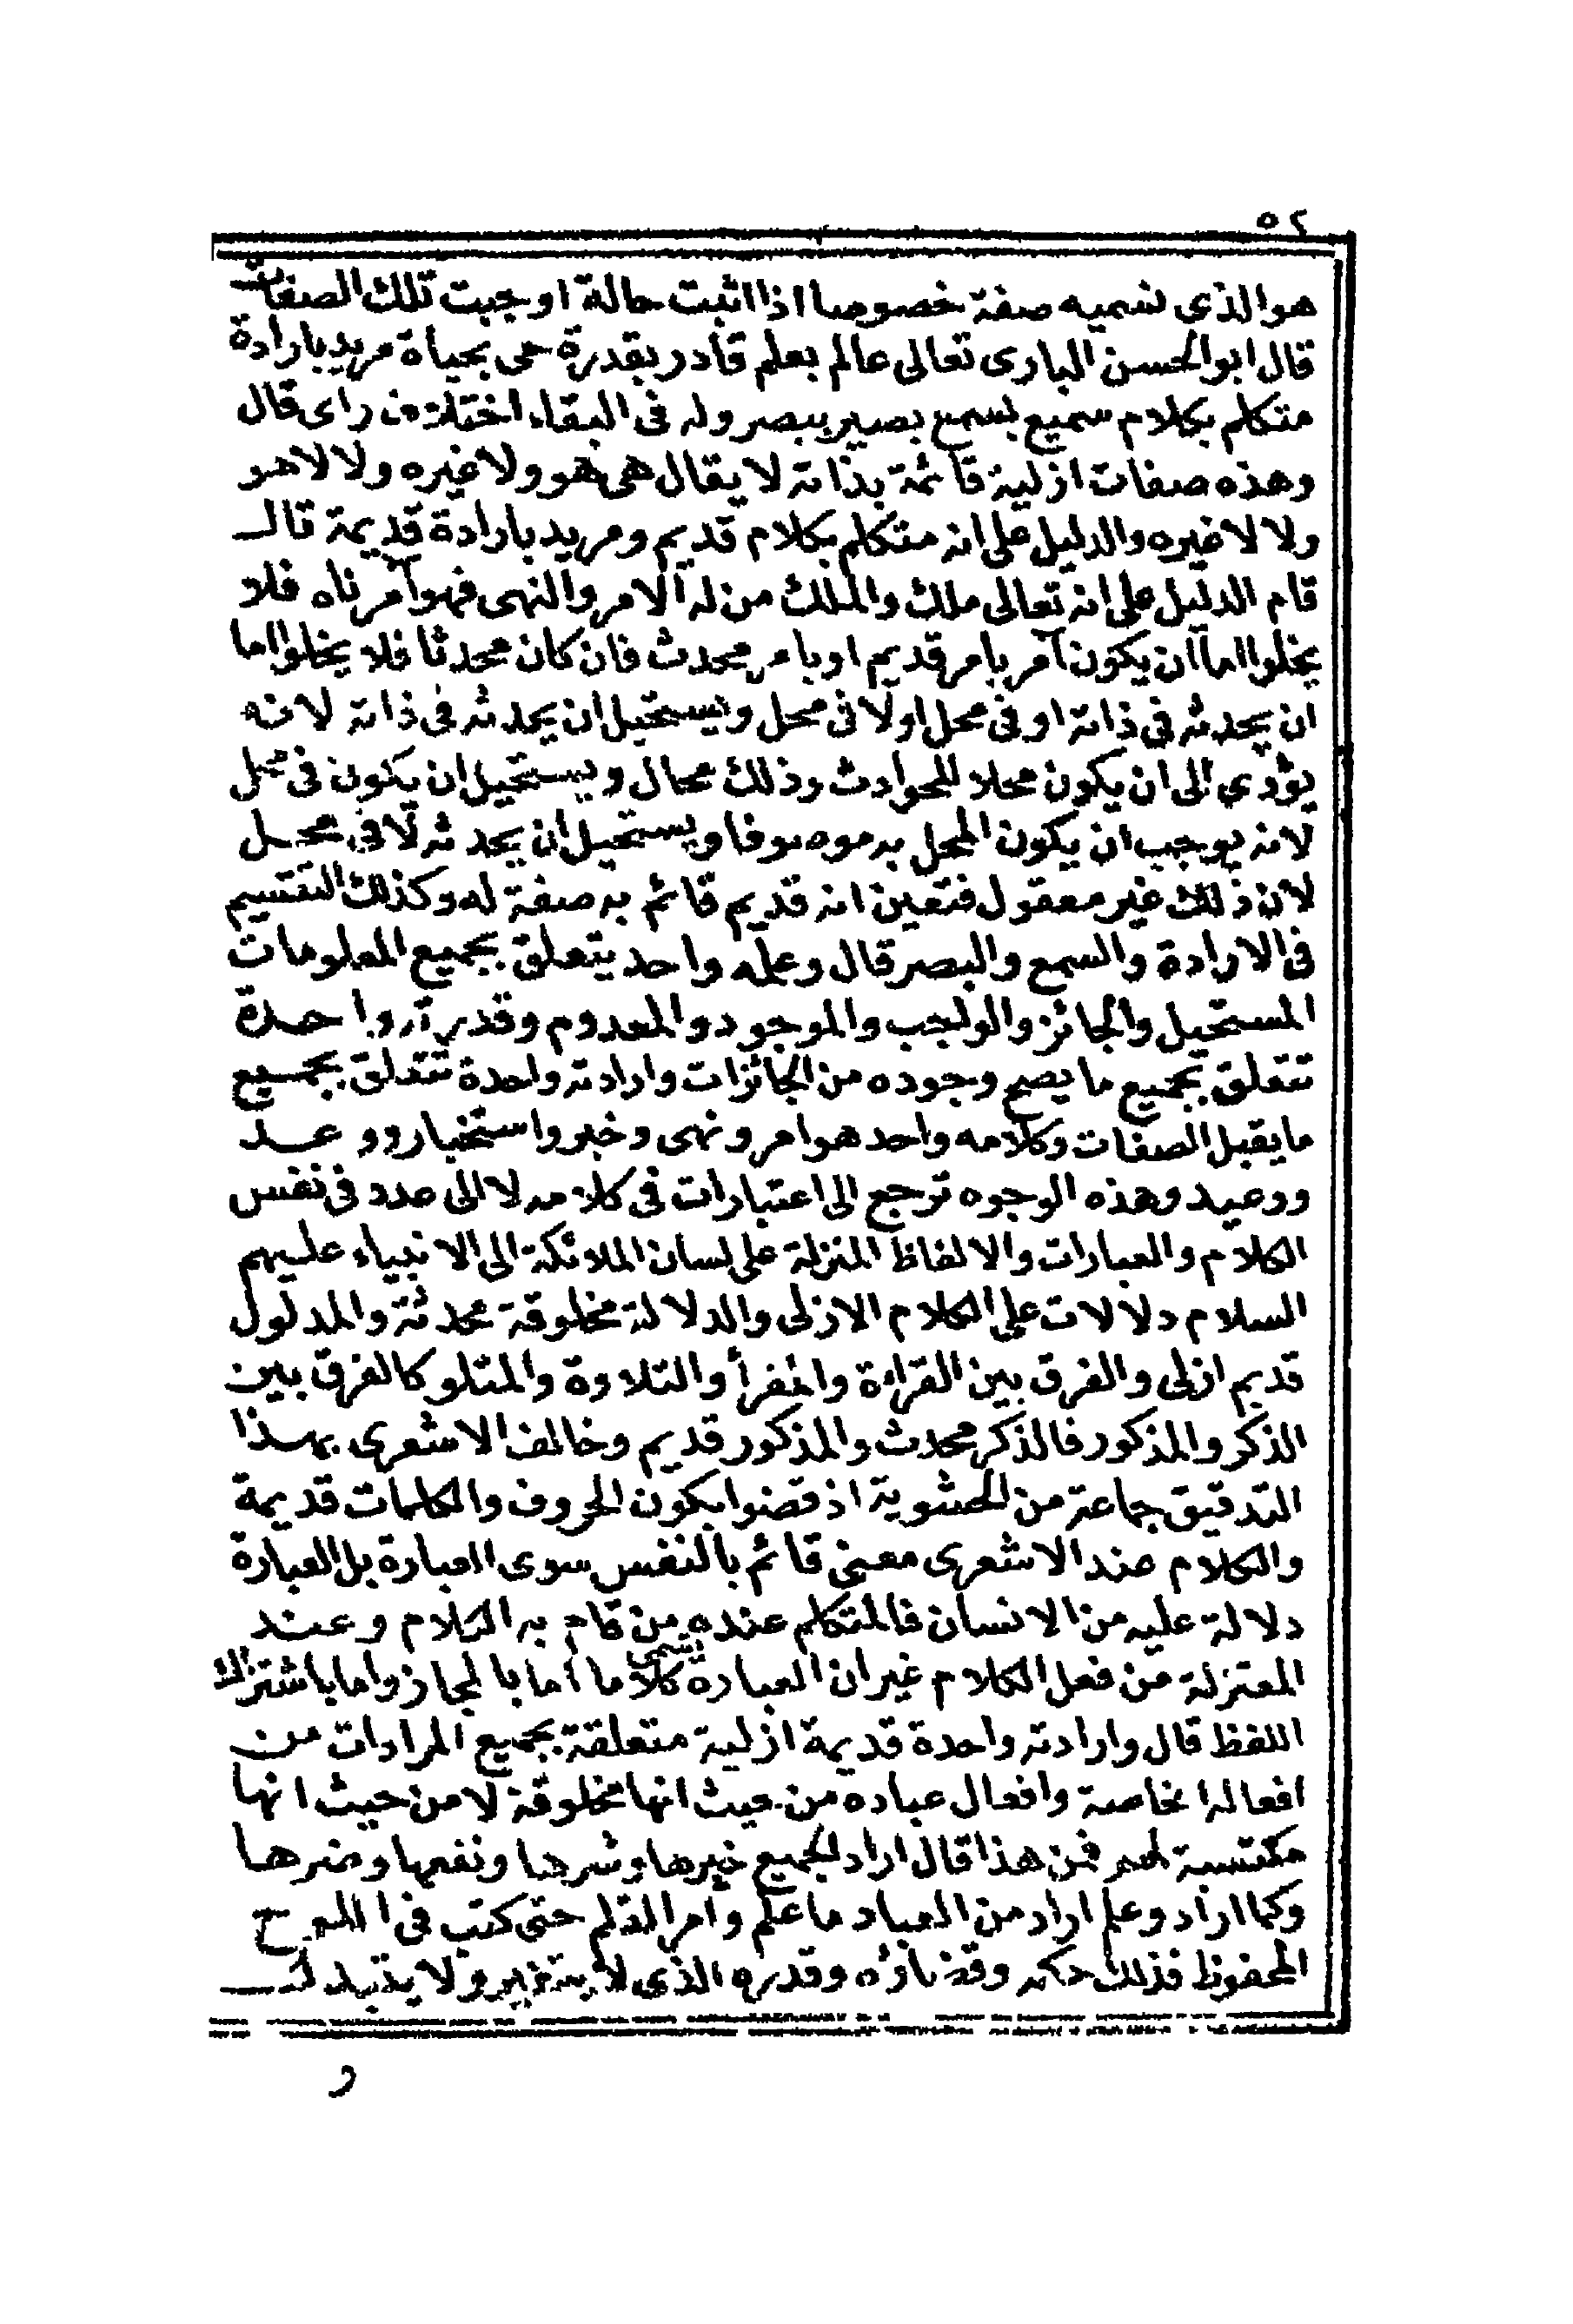 ٥٢
هو الذى نسميه صفة خصوصا اذا اثبت حالة اوجبت تلك الصفات
قال ابو الحسن البارى تعالى عالم بعلم قادر بقدرة حى بحياة مريد بارادة
متكلم بكلام سميع بسمع بصير ببصر وله فى البقاء اختلاف راى قال
وهذه صفات ازلية قائمة بذاته لا يقال هى هو ولا غيره ولا لا هو
ولا لا غيره والدليل على انه متكلم بكلام قديم ومريد بارادة قديمة قال
قام الدليل على انه تعالى ملك والملك من له الامر والنهى فهو آمر ناه فلا
يخلوا اما ان يكون آمر بامر قديم او بامر محدث فان كان محدثا فلا يخلوا اما
ان يحدثه فى ذاته او فى محل اولا فى محل ويستحيل ان يحدثه فى ذاته لانه
يؤدي الى ان يكون محلا للحوادث وذلك محال ويستحيل ان يكون فى محل
لانه يوجب ان يكون المحل به موصوفا ويستحيل ان يحدثه لا فى محل
لان ذلك غير معقول فتعين انه قديم قائم به صفة له وكذلك التقسيم
فى الارادة والسمع والبصر قال وعلمه واحد يتعلق بجميع المعلومات
المستحيل والجائز والواجب والموجود والمعدوم وقدرته واحدة
تتعلق بجميع ما يصح وجوده من الجائزات وارادته واحدة تتعلق بجميع
ما يقبل الصفات وكلامه واحد هو امر ونهى وخبر واستخبار ووعد
ووعيد وهذه الوجوه ترجع الى اعتبارات فى كلامه لا الى عدد فى نفس
الكلام والعبارات والالفاظ المنزلة على لسان الملائكة الى الانبياء عليهم
السلام دلالات على الكلام الازلى والدلالة مخلوقة محدثة والمدلول
قديم ازلى والفرق بين القراءة والمقرأ والتلاوة والمتلو كالفرق بين
الذكر والمذكور فالذكر محدث والمذكور قديم وخالف الاشعرى بهذا
التدقيق جماعة من الحشوية اذ قضوا بكون الحروف والكلمات قديمة
والكلام عند الاشعرى معنى قائم بالنفس سوى العبارة بل العبارة
دلالة عليه من الانسان فالمتكلم عنده من قام به الكلام وعند
المعتزلة من فعل الكلام غير ان العبارة تسمى كلاما اما بالمجاز واما باشتراك
اللفظ قال وارادته واحدة قديمة ازلية متعلقة بجميع المرادات من
افعاله الخاصة وافعال عباده من حيث انها مخلوقة لا من حيث انها
مكتسبة لهم فمن هذا قال اراد الجميع خيرها وشرها ونفعها وضرها
وكما اراد وعلم اراد من العباد ما علم وامر القلم حتى كتب فى اللوح
المحفوظ فذلك حكمه وقضاؤه وقدره الذى لا يتغير ولا يتبدل
و